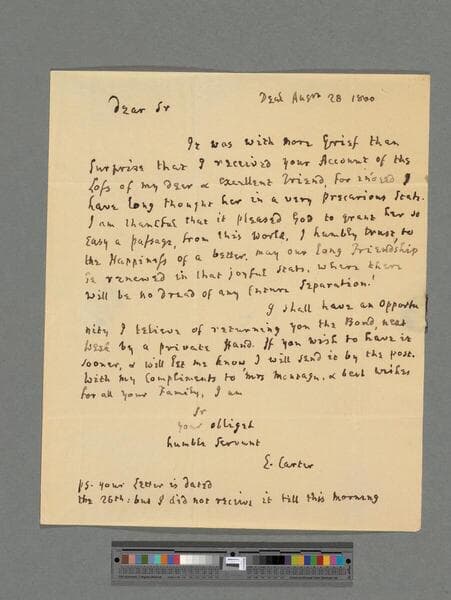 Deal Augst 28 1800
Dear Sr
It was with more Grief than
Surprize that I received your Account of the
Loss of my dear & excellent Friend, for indeed I
have long thought her in a very precarious State.
I am thankful that it pleased God to grant her so
easy a passage, from this World, I humbly trust, to
the Happiness of a better. may our long Friendship
be renewed in that joyful State. where there
will be no dread of any future Separation!
I shall have an Opportu
nity I believe of returning you the Bond, next
Week by a private Hand. If you wish to have it
sooner, & will let me know I will send it by the post.
With my Compliments to Mrs Montagu. & best wishes
for all your Family, I am
Sr
your obliged
humble Servant
E. Carter
ps. your Letter is dated
the 26th: but I did not receive it till this morning